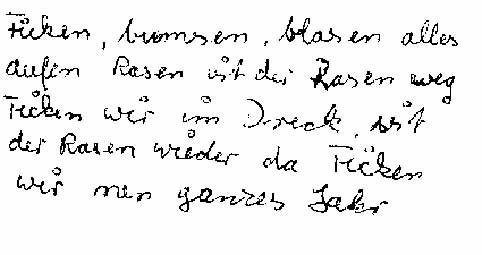 Ficken, bumsen, blasen alles
aufen Rasen ist der Rasen weg
Ficken wir im Dreck, ist
der Rasen wieder da Ficken
wir nen ganzes Jahr